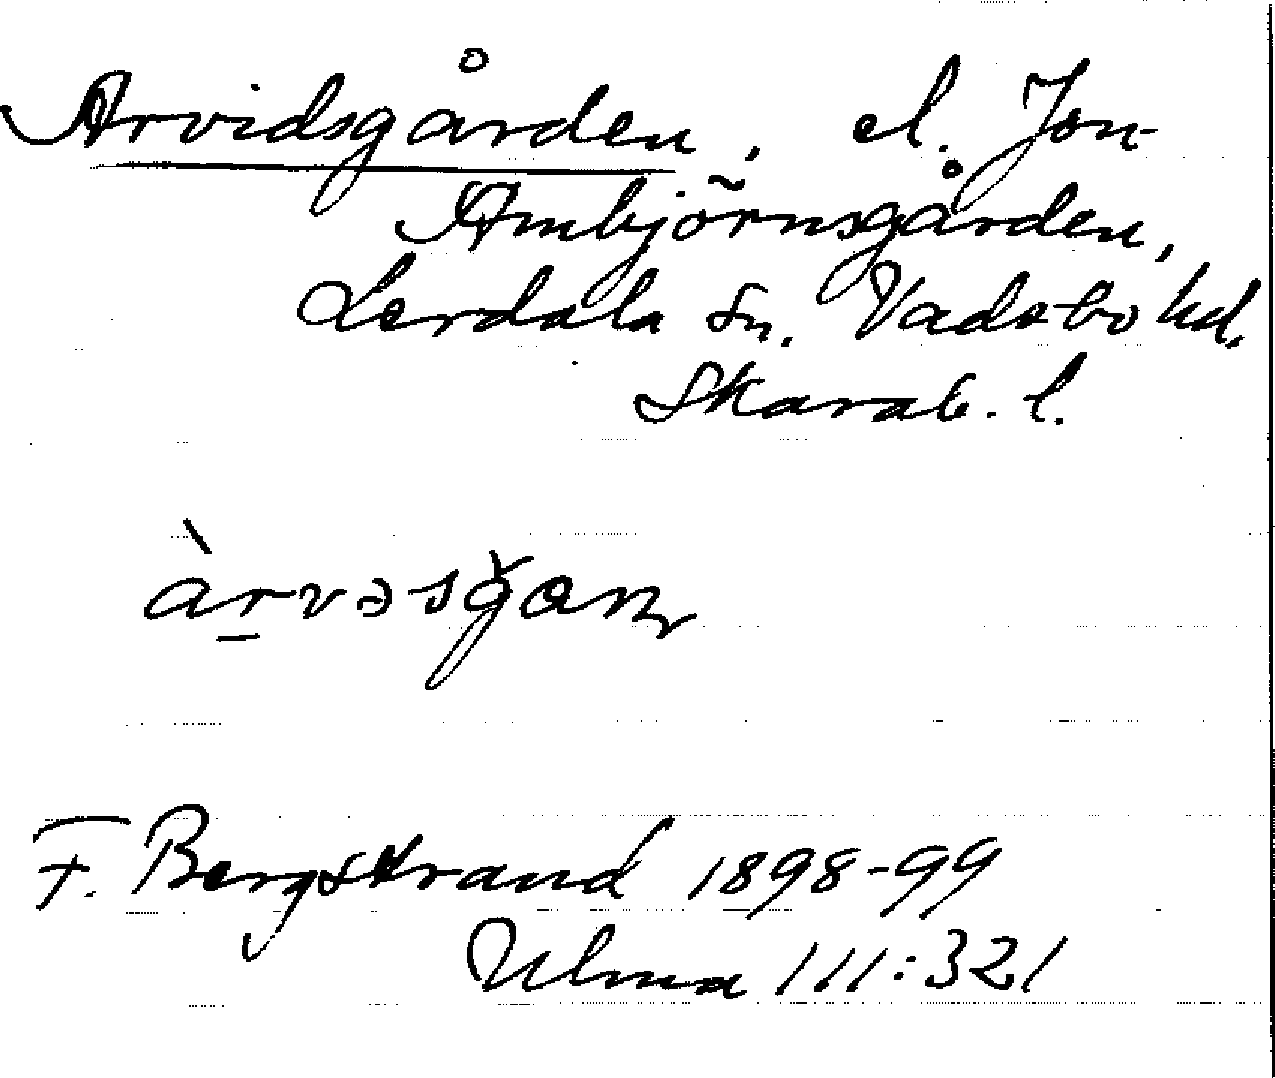 Arvidsgården, el. Jon
Ambjörnsgården,
Lerdala sn. Vadsbo hd.
Skarab. l.
àr̲vəsgan
F. Bergstrand 1898-99
Ulma 111:321